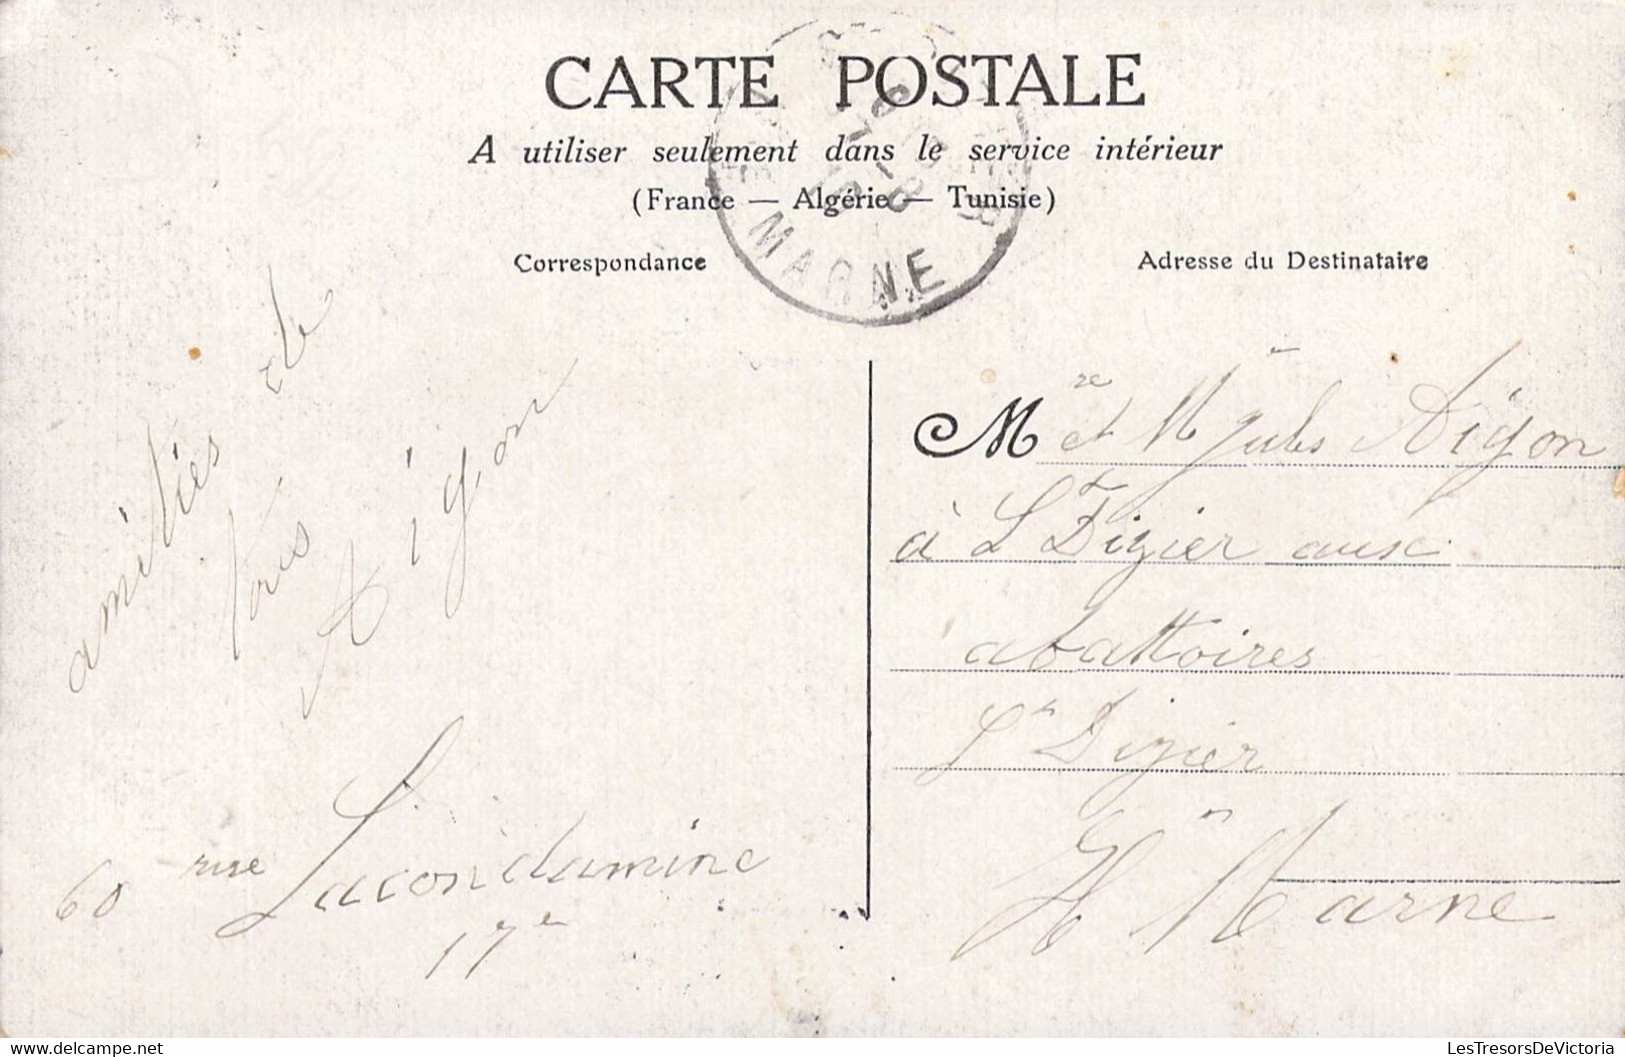 CARTE POSTALE
A utiliser seulement dans le service intérieur
(France — Algérie — Tunisie)
MARNE
Correspondance
Adresse du Destinataire
amitiés de
tous
Aigon
60 rue Lacondamine
17e
Mre et Mr Jules Aigon
à St Dizier aux
abattoires
St Dizier
Hte Marne
LesTresorsDeVictoria